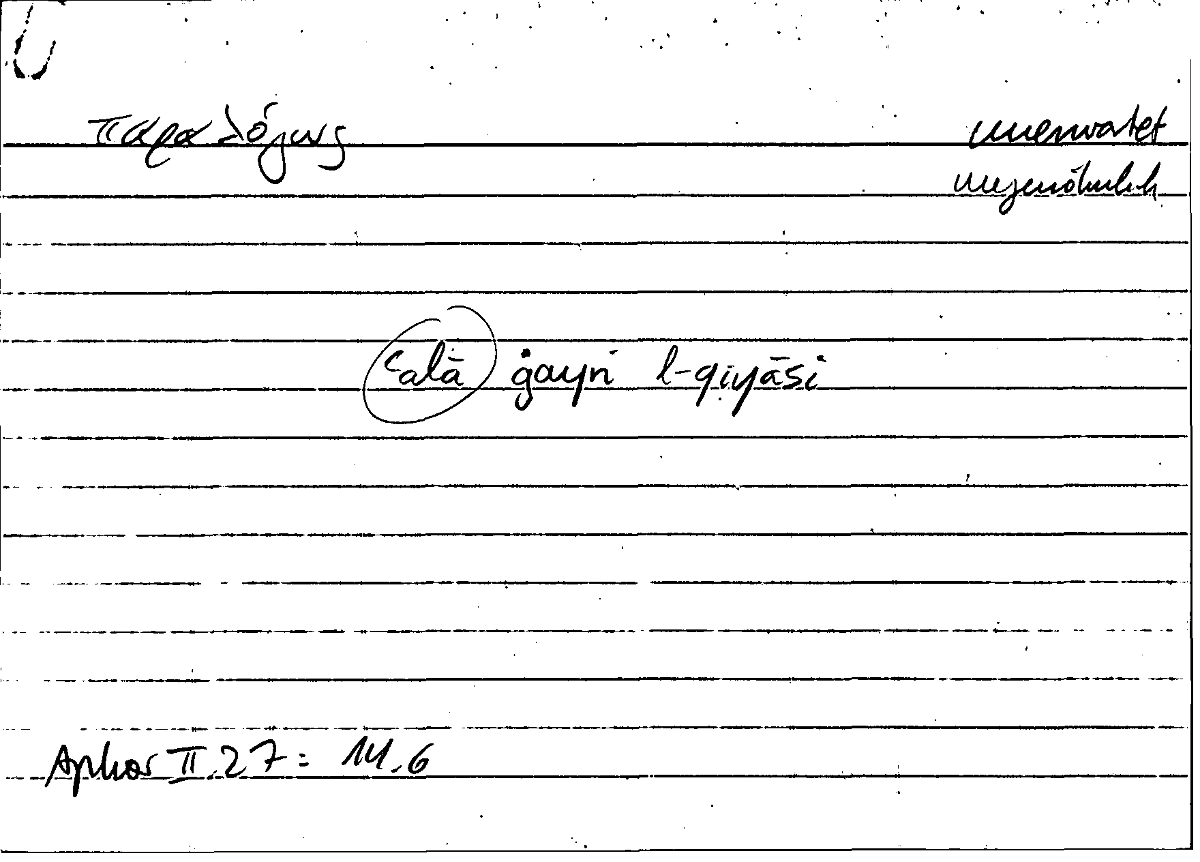 παραλόγως unerwartet
ungewöhnlich
ʿalā ġayri l-qiyāsi
Aphor II.27 = 14.6